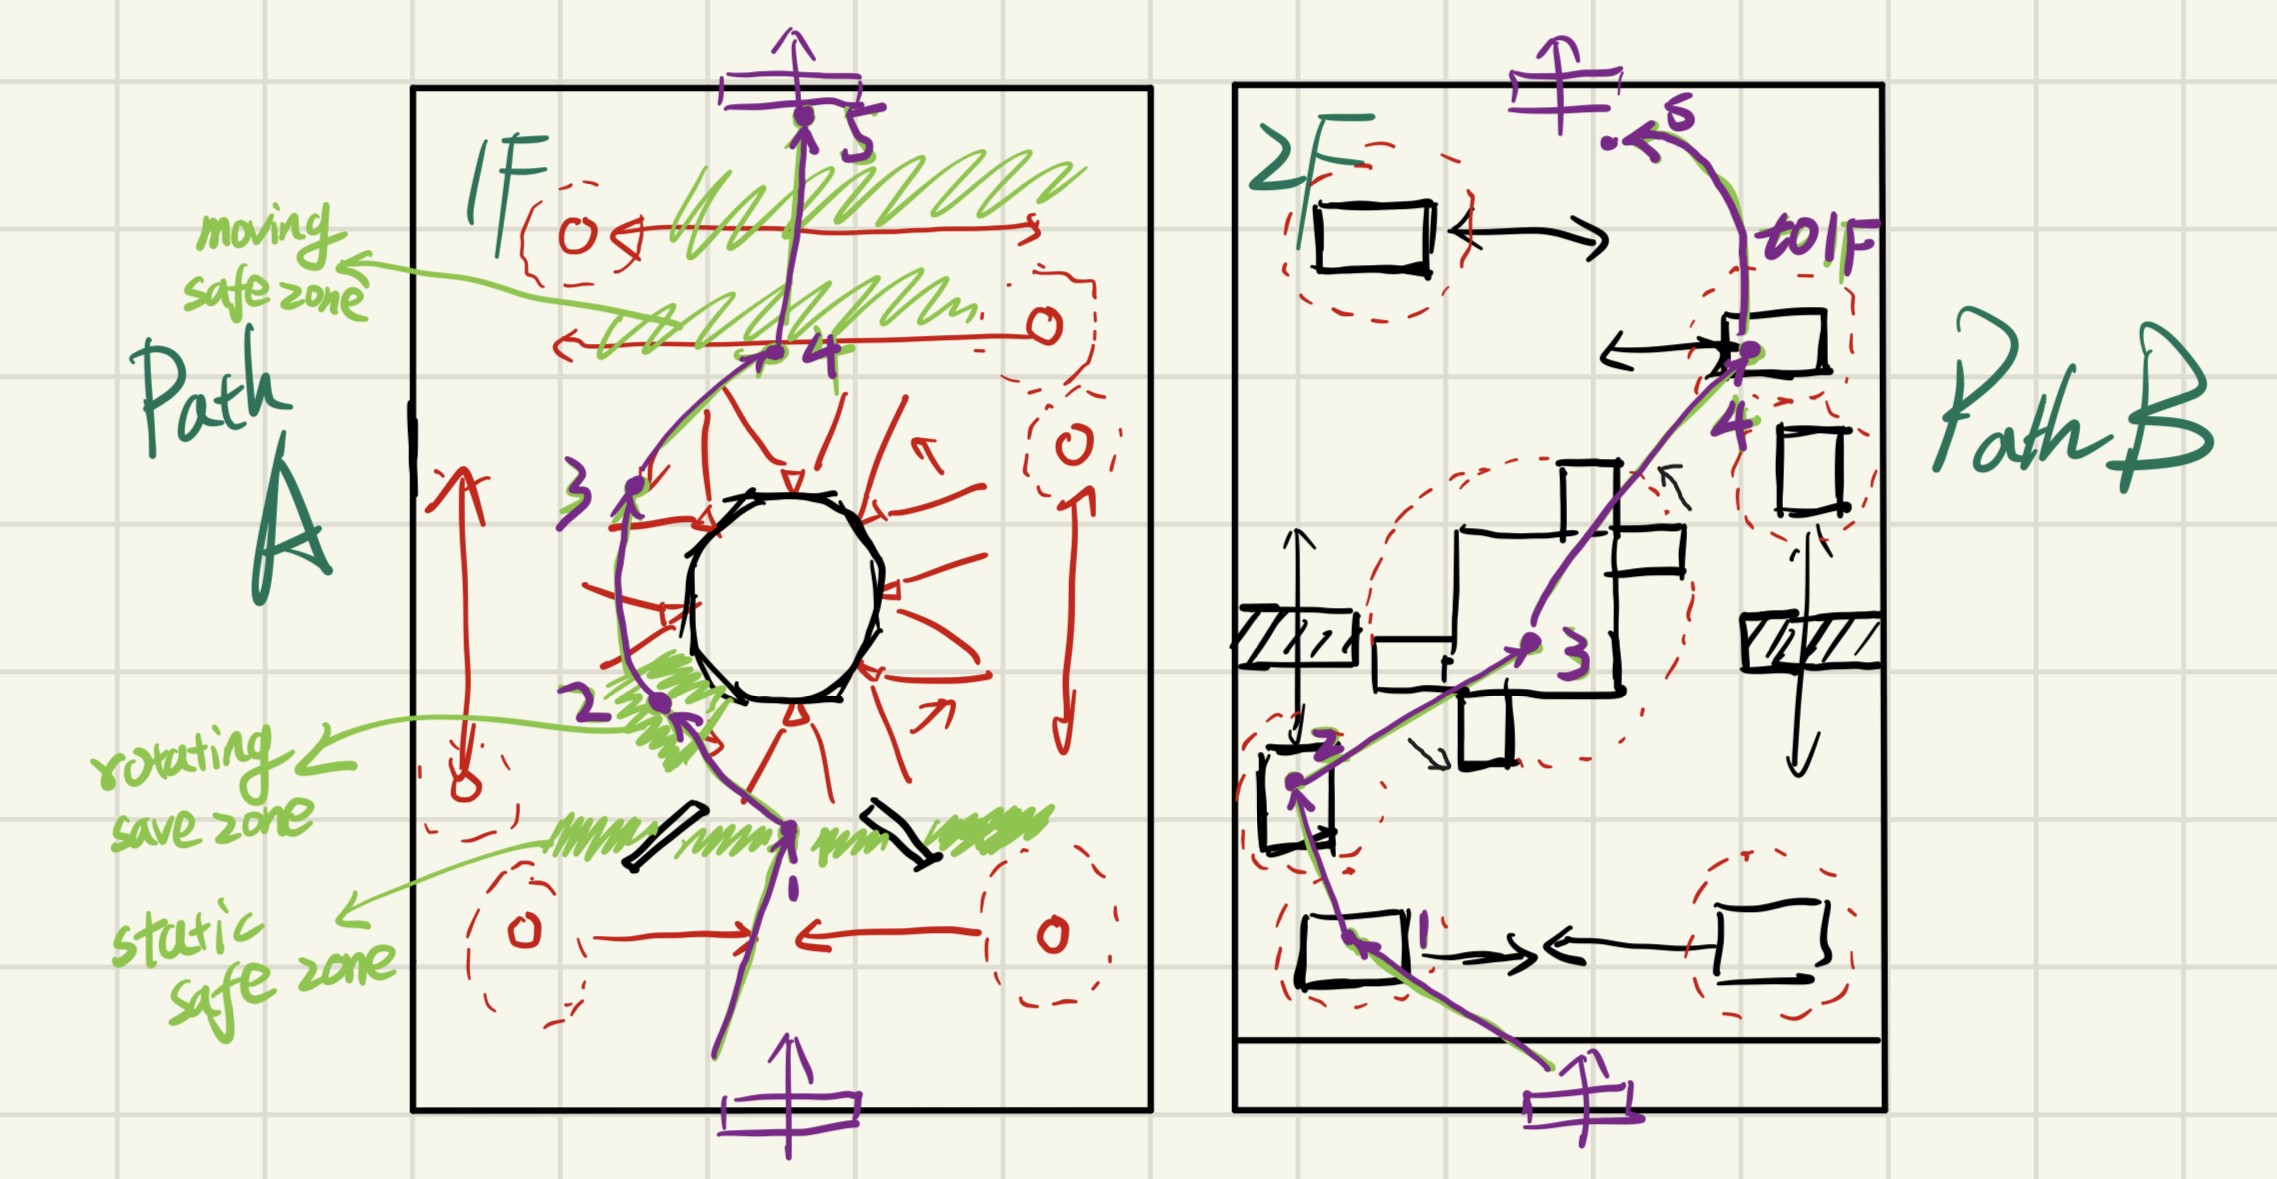 1F
5
moving
safe zone
4
Path
A
3
2
rotating
save zone
1
static
safe zone
2F
5
to 1F
4
3
2
1
Path B